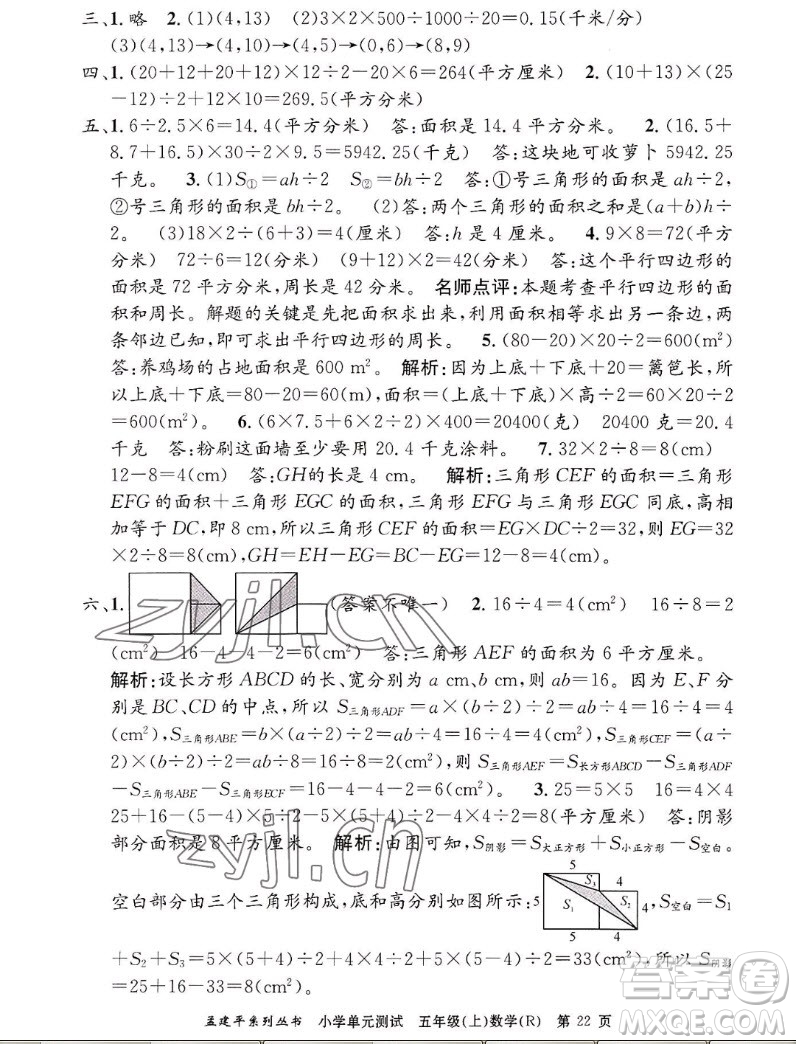 三、1. 略 2. (1)(4,13) (2)3×2×500÷1000÷20=0.15(千米/分)
(3)(4,13)→(4,10)→(4,5)→(0,6)→(8,9)
四、1. (20+12+20+12)×12÷2-20×6=264(平方厘米) 2. (10+13)×(25
-12)÷2+12×10=269.5(平方厘米)
五、1. 6÷2.5×6=14.4(平方分米) 答:面积是14.4平方分米。 2. (16.5+
8.7+16.5)×30÷2×9.5=5942.25(千克) 答:这块地可收萝卜5942.25
千克。 3. (1)S①=ah÷2 S②=bh÷2 答:①号三角形的面积是ah÷2,
②号三角形的面积是bh÷2。 (2)答:两个三角形的面积之和是(a+b)h÷
2。 (3)18×2÷(6+3)=4(厘米) 答:h是4厘米。 4. 9×8=72(平方
分米) 72÷6=12(分米) (9+12)×2=42(分米) 答:这个平行四边形的
面积是72平方分米,周长是42分米。 名师点评:本题考查平行四边形的
面积和周长。解题的关键是先把面积求出来,利用面积相等求出另一条边,两
条邻边已知,即可求出平行四边形的周长。 5. (80-20)×20÷2=600(m²)
答:养鸡场的占地面积是600 m²。 解析:因为上底+下底+20=篱笆长,所
以上底+下底=80-20=60(m),面积=(上底+下底)×高÷2=60×20÷2
=600(m²) 6. (6×7.5+6×2÷2)×400=20400(克) 20400克=20.4
千克 答:粉刷这面墙至少要用20.4千克涂料。 7. 32×2÷8=8(cm)
12-8=4(cm) 答:GH的长是4 cm。 解析:三角形CEF的面积=三角形
EFG的面积+三角形EGC的面积,三角形EFG与三角形EGC同底,高相
加等于DC,即8 cm,所以三角形CEF的面积=EG×DC÷2=32,则EG=32
×2÷8=8(cm),GH=EH-EG=BC-EG=12-8=4(cm)。
六、1. (答案不唯一) 2. 16÷4=4(cm²) 16÷8=2
(cm²) 16-4-4-2=6(cm²) 答:三角形AEF的面积为6平方厘米。
解析:设长方形ABCD的长、宽分别为a cm、b cm,则ab=16。因为E、F分
别是BC、CD的中点,所以S三角形ADF=a×(b÷2)÷2=ab÷4=16÷4=4
(cm²),S三角形ABE=b×(a÷2)÷2=ab÷4=16÷4=4(cm²),S三角形CEF=(a÷
2)×(b÷2)÷2=ab÷8=16÷8=2(cm²)。则S三角形AEF=S长方形ABCD-S三角形ADF
-S三角形ABE-S三角形ECF=16-4-4-2=6(cm²)。 3. 5×5=25 16=4×4
25+16-(5-4)×5÷2-5×(5+4)÷2-4×4÷2=8(平方厘米) 答:阴影
部分面积是8平方厘米。 解析:由图可知,S阴影=S大正方形+S小正方形-S空白。
5 S₃ 4
空白部分由三个三角形构成,底和高分别如图所示: 5 S₁ S₂ 4 ,S空白=S₁
5 4
+S₂+S₃=5×(5+4)÷2+4×4÷2+5×(5-4)÷2=33(cm²),所以S阴影
=25+16-33=8(cm²)。
孟建平系列丛书 小学单元测试 五年级(上)数学(R) 第 22 页
zyjl.cn
zyjl.cn
答案圈